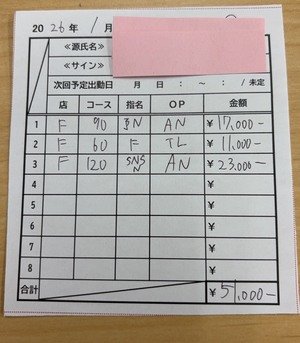 2026年 1月
≪源氏名≫
≪サイン≫
次回予定出勤日 月 日 : ~ : /未定
店 コース 指名 OP 金額
1 F 90 AN ¥17,000-
2 F 60 F TL ¥11,000-
3 F 120 SNS N AN ¥23,000-
4 ¥
5 ¥
6 ¥
7 ¥
8 ¥
合計 ¥51,000-